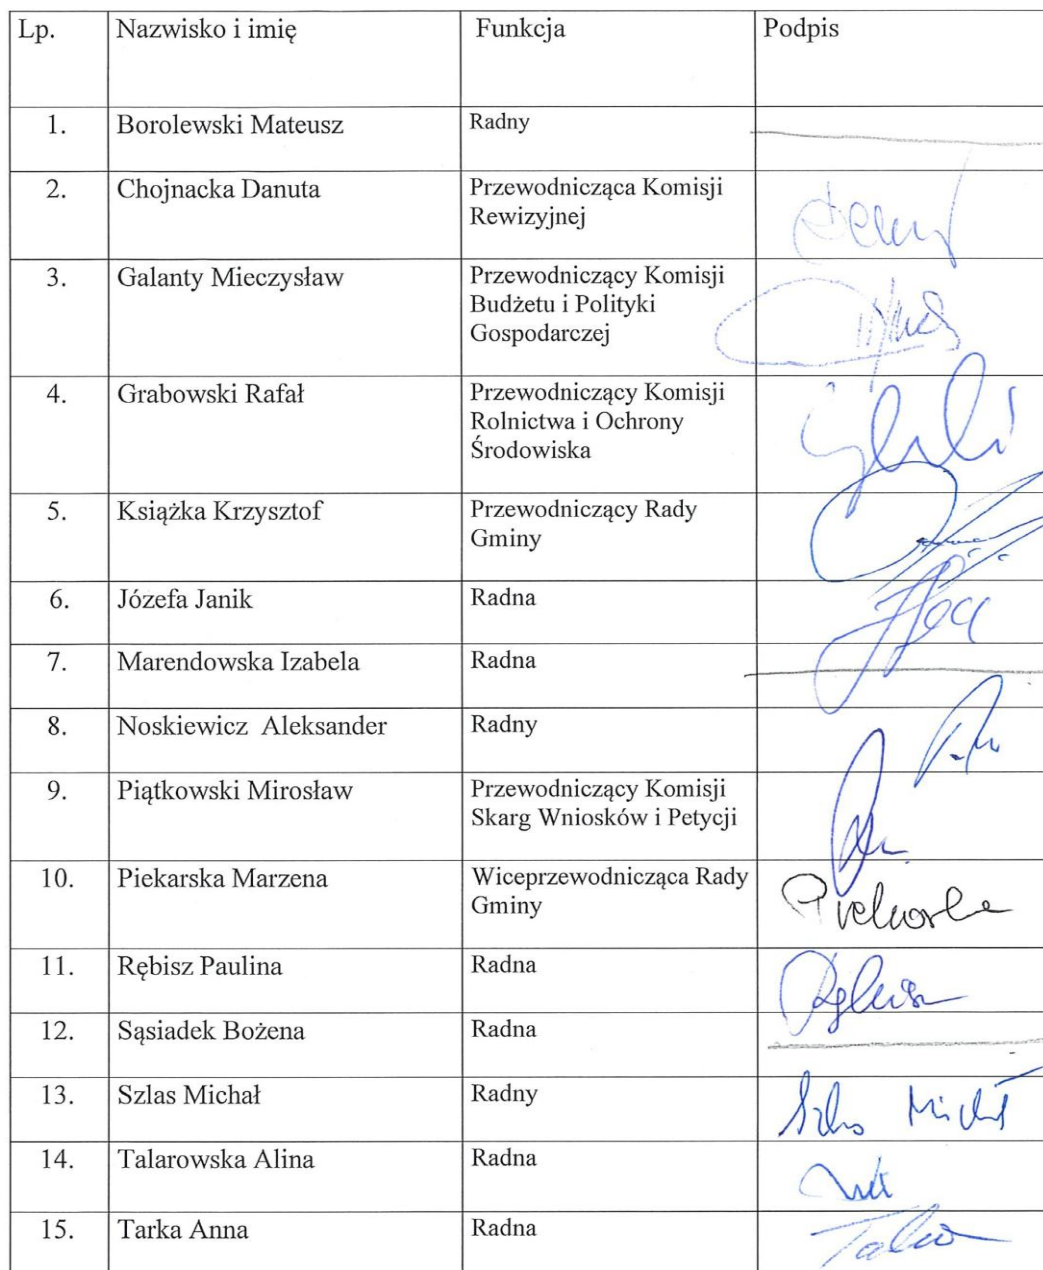 Lp. Nazwisko i imię Funkcja Podpis
1. Borolewski Mateusz Radny
2. Chojnacka Danuta Przewodnicząca Komisji
Rewizyjnej
3. Galanty Mieczysław Przewodniczący Komisji
Budżetu i Polityki
Gospodarczej
4. Grabowski Rafał Przewodniczący Komisji
Rolnictwa i Ochrony
Środowiska
5. Książka Krzysztof Przewodniczący Rady
Gminy
6. Józefa Janik Radna
7. Marendowska Izabela Radna
8. Noskiewicz Aleksander Radny
9. Piątkowski Mirosław Przewodniczący Komisji
Skarg Wniosków i Petycji
10. Piekarska Marzena Wiceprzewodnicząca Rady
Gminy
11. Rębisz Paulina Radna
12. Sąsiadek Bożena Radna
13. Szlas Michał Radny
14. Talarowska Alina Radna
15. Tarka Anna Radna